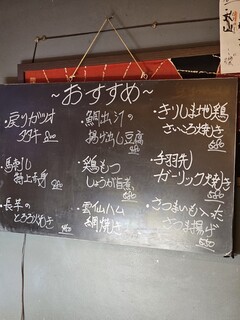 ～おすすめ～
・戻りガツオ
・馬刺し
特上赤身
・長芋の
とろろ焼き
・鯛出汁の
揚げ出し豆腐
・鶏もつ
しょうが旨煮
・雲仙ハム
網焼き
・きりしま地鶏
さいころ焼き
・手羽先
ガーリック焼き
・さつまいも入った
さつま揚げ